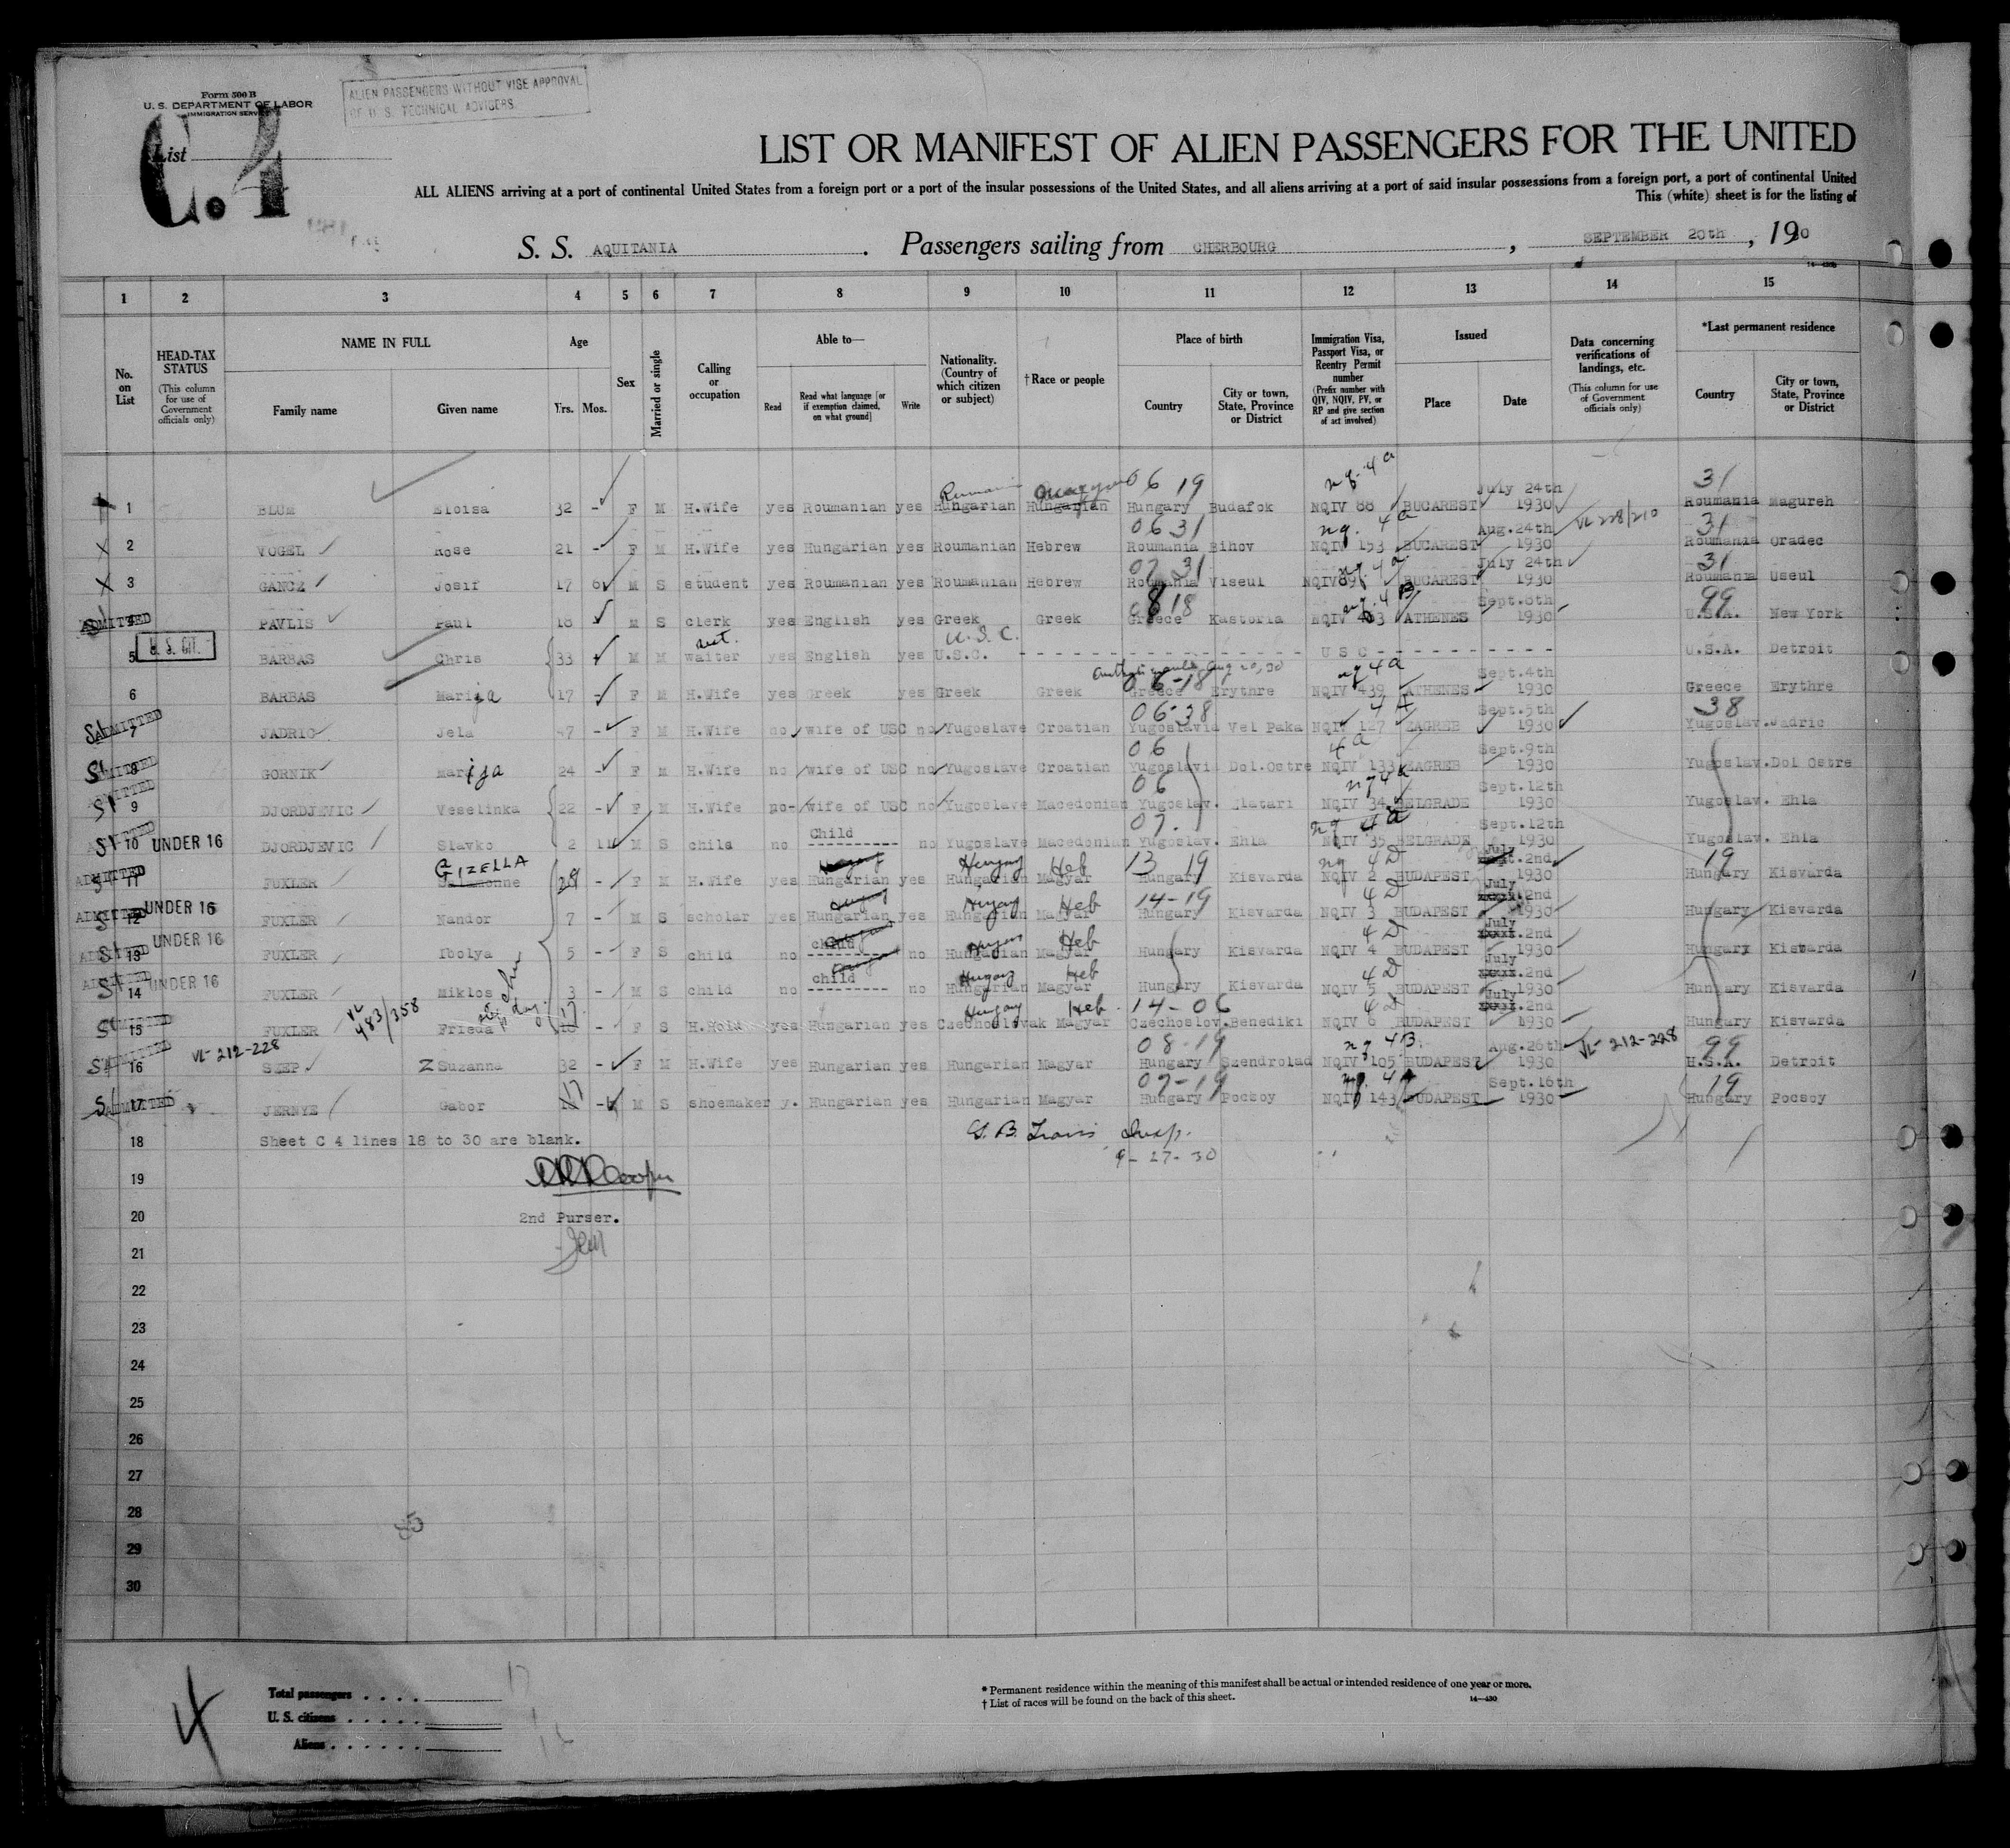 Form 500 B
U. S. DEPARTMENT OF LABOR
IMMIGRATION SERVICE
ALIEN PASSENGERS WITHOUT VISE APPROVAL
OF U. S. TECHNICAL ADVISERS.
List
C.4
LIST OR MANIFEST OF ALIEN PASSENGERS FOR THE UNITED
ALL ALIENS arriving at a port of continental United States from a foreign port or a port of the insular possessions of the United States, and all aliens arriving at a port of said insular possessions from a foreign port, a port of continental United
This (white) sheet is for the listing of
S. S. AQUITANIA. Passengers sailing from CHERBOURG, SEPTEMBER 20th, 1930
1 2 3 4 5 6 7 8 9 10 11 12 13 14 15
No. on List
HEAD-TAX STATUS (This column for use of Government officials only)
NAME IN FULL Family name Given name
Age Yrs. Mos.
Sex
Married or single
Calling or occupation
Able to— Read Read what language [or if exemption claimed, on what ground] Write
Nationality. (Country of which citizen or subject)
†Race or people
Place of birth Country City or town, State, Province or District
Immigration Visa, Passport Visa, or Reentry Permit number (Prefix number with QIV, NQIV, PV, or RP and give section of act involved)
Issued Place Date
Data concerning verifications of landings, etc. (This column for use of Government officials only)
*Last permanent residence Country City or town, State, Province or District
06 19 nq. 4a July 24th 31
1 BLUM Eloisa 32 - F M H.Wife yes Roumanian yes Hungarian Hungarian Hungary Budafok NQIV 88 BUCAREST 1930 Roumania Magureh
06 31 nq. 4a Aug.24th VL 228/210 31
2 VOGEL Rose 21 - F M H.Wife yes Hungarian yes Roumanian Hebrew Roumania Bihov NQIV 153 BUCAREST 1930 Roumania Oradec
07 31 nq. 4a July 24th 31
3 GANCZ Josif 17 M S student yes Roumanian yes Roumanian Hebrew Roumania Viseul NQIV 89 BUCAREST 1930 Roumania Useul
818 nq. 4B Sept.8th 99
ADMITTED 4 PAVLIS Paul 18 M S clerk yes English yes Greek Greek Greece Kastoria NQIV 463 ATHENES 1930 U.S.A. New York
U. S. CIT. rest. U.S.C.
5 BARBAS Chris 33 M M waiter yes English yes U.S.C. - - - USC - - - U.S.A. Detroit
06-18 nq 4a Sept.4th
6 BARBAS Mariga 17 - F M H.Wife yes Greek yes Greek Greek Greece Erythre NQIV 439 ATHENES 1930 Greece Erythre
06-38 4A Sept.5th 38
ADMITTED 7 JADRIC Jela 47 - F M H.Wife no wife of USC no Yugoslave Croatian Yugoslavia Vel Paka NQIV 127 ZAGREB 1930 Yugoslav. Jadric
06 4a Sept.9th
ADMITTED 8 GORNIK Marija 24 - F M H.Wife no wife of USC no Yugoslave Croatian Yugoslavia Dol.Ostre NQIV 133 ZAGREB 1930 Yugoslav. Dol Ostre
06 nq 4a Sept.12th
ADMITTED 9 DJORDJEVIC Veselinka 22 - F M H.Wife no- wife of USC no Yugoslave Macedonian Yugoslav. Zlatari NQIV 34 BELGRADE 1930 Yugoslav. Ehla
07. nq 4a Sept.12th
ADMITTED 10 UNDER 16 DJORDJEVIC Slavko 2 11 M S child no Child no Yugoslave Macedonian Yugoslav. Ehla NQIV 35 BELGRADE 1930 Yugoslav. Ehla
GIZELLA Hungary Heb 13 19 nq 4D July 2nd 19
ADMITTED 11 FUXLER 29 - F M H.Wife yes Hungarian yes Hungarian Magyar Hungary Kisvarda NQIV 2 BUDAPEST 1930 Hungary Kisvarda
Hungary Heb 14-19 4D July 2nd
ADMITTED 12 UNDER 16 FUXLER Nandor 7 - M S scholar yes Hungarian yes Hungarian Magyar Hungary Kisvarda NQIV 3 BUDAPEST 1930 Hungary Kisvarda
Hungary Heb 4D July 2nd
ADMITTED 13 UNDER 16 FUXLER Ibolya 5 - F S child no child no Hungarian Magyar Hungary Kisvarda NQIV 4 BUDAPEST 1930 Hungary Kisvarda
Hungary Heb 4D July 2nd
ADMITTED 14 UNDER 16 FUXLER Miklos 3 - M S child no child no Hungarian Magyar Hungary Kisvarda NQIV 5 BUDAPEST 1930 Hungary Kisvarda
VL 483/358 Hungary Heb 14-06 4D July 2nd
ADMITTED 15 FUXLER Frieda 17 - F S yes Hungarian yes Czechoslovak Magyar Czechoslov. Benediki NQIV 6 BUDAPEST 1930 Hungary Kisvarda
VL-212-228 08-19 nq 4B. Aug.26th VL-212-228 99
ADMITTED 16 SZEP Zsuzanna 32 - F M H.Wife yes Hungarian yes Hungarian Magyar Hungary Szendrolad NQIV 105 BUDAPEST 1930 U.S.A. Detroit
17 07-19 nq. 4A Sept.16th 19
ADMITTED 17 JERNYE Gabor M S shoemaker y. Hungarian yes Hungarian Magyar Hungary Pocsoy NQIV 143 BUDAPEST 1930 Hungary Pocsoy
18 Sheet C 4 lines 18 to 30 are blank. Insp.
9-27-30
19
20 2nd Purser.
21
22
23
24
25
26
27
28
29
30
4
Total passengers . . . .
U. S. citizens . . . . .
Aliens . . . . . .
* Permanent residence within the meaning of this manifest shall be actual or intended residence of one year or more.
† List of races will be found on the back of this sheet. 14—430